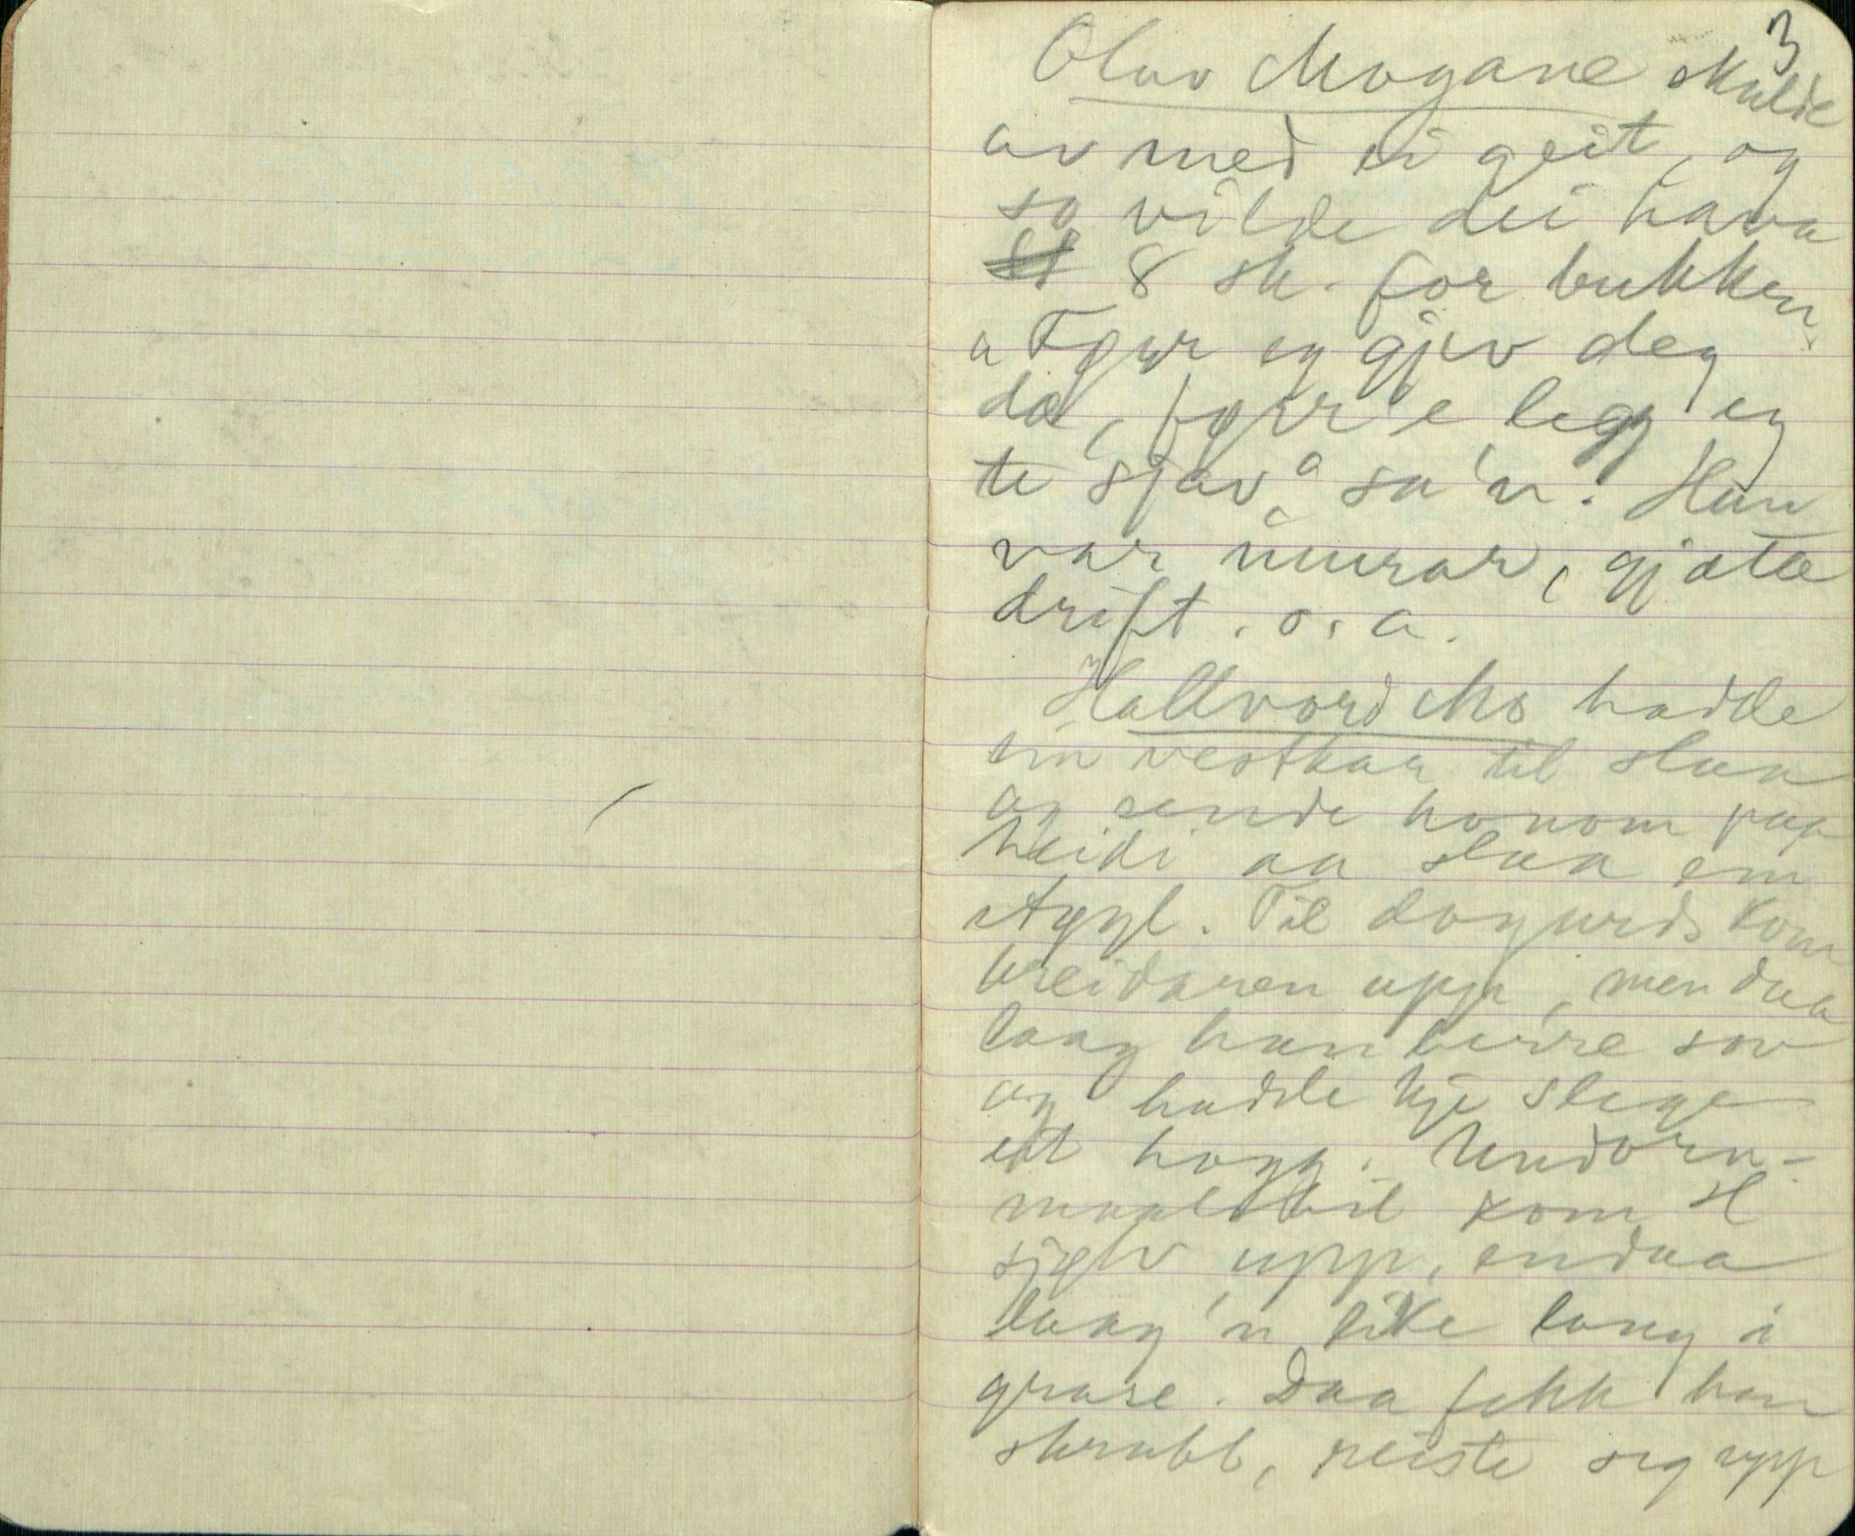 3
Olav Mogane skulde
av med ei geit, og
so vilde dei hava
8 sk. for bukken
"Fyrr eg gjev deg
dæ, fyrr 'e legg eg
te sjøv" sa'n. Han
var murar, gjætte
drift. o. a.
Hallvord Mo hadde
ein vestkar til slaa
og sende honom paa
heidi aa slaa ein
støyl. Til dogurds kom
breidaren upp, men daa
laag han berre sov
og hadde kje slege
eit hogg. Undorn-
maalsbil kom H
sjølv upp, endaa
laag 'n like lang i
grase. Daa fekk han
skrubb, reiste seg upp